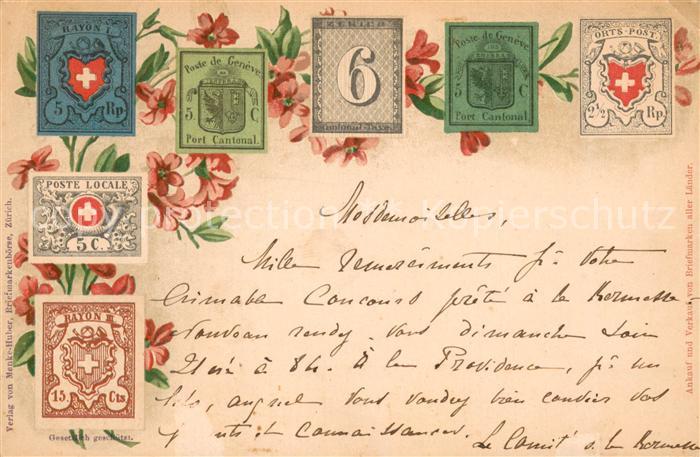 RAYON I.
5 Rp
Poste de Genève
5 C
Port Cantonal.
ZÜRICH
6
Cantonal-Taxe.
Poste de Genève
5 C
Port Cantonal
ORTS-POST.
2½ Rp.
POSTE LOCALE
5 C.
RAYON III.
15 Cts
Gesetzlich geschützt.
Verlag von Menke-Huber, Briefmarkenbörse, Zürich.
Ankauf und Verkauf von Briefmarken aller Länder.
Mesdemoiselles,
Mille remerciements pr. votre
aimable Concours prêté à la Kermesse
Nouveau rendez-vous dimanche soir
21 à 8h. à la Providence, pr. un
auquel vous voudrez bien convier vos
parents et connaissances.
Le Comité de la Kermesse